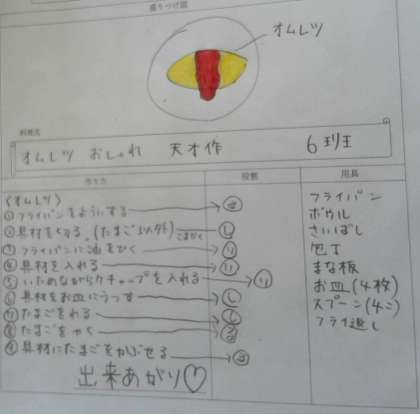 盛りつけ図
オムレツ
料理名
オムレツ おしゃれ 天才作 6班
作り方 役割 用具
〈オムレツ〉
①フライパンをようする → せ
②具材を切る。(たまご以外) こまかく → し
③フライパンに油をひく → り
④具材を入れる → い
⑤いためながらケチャップを入れる → り
⑥具材をお皿にうつす → し
⑦たまごをわる → し
⑧たまごをやく → る
⑨具材にたまごをかぶせる → る
出来あがり♡
フライパン
ボウル
さいばし
包丁
まな板
お皿(4枚)
スプーン(4こ)
フライ返し